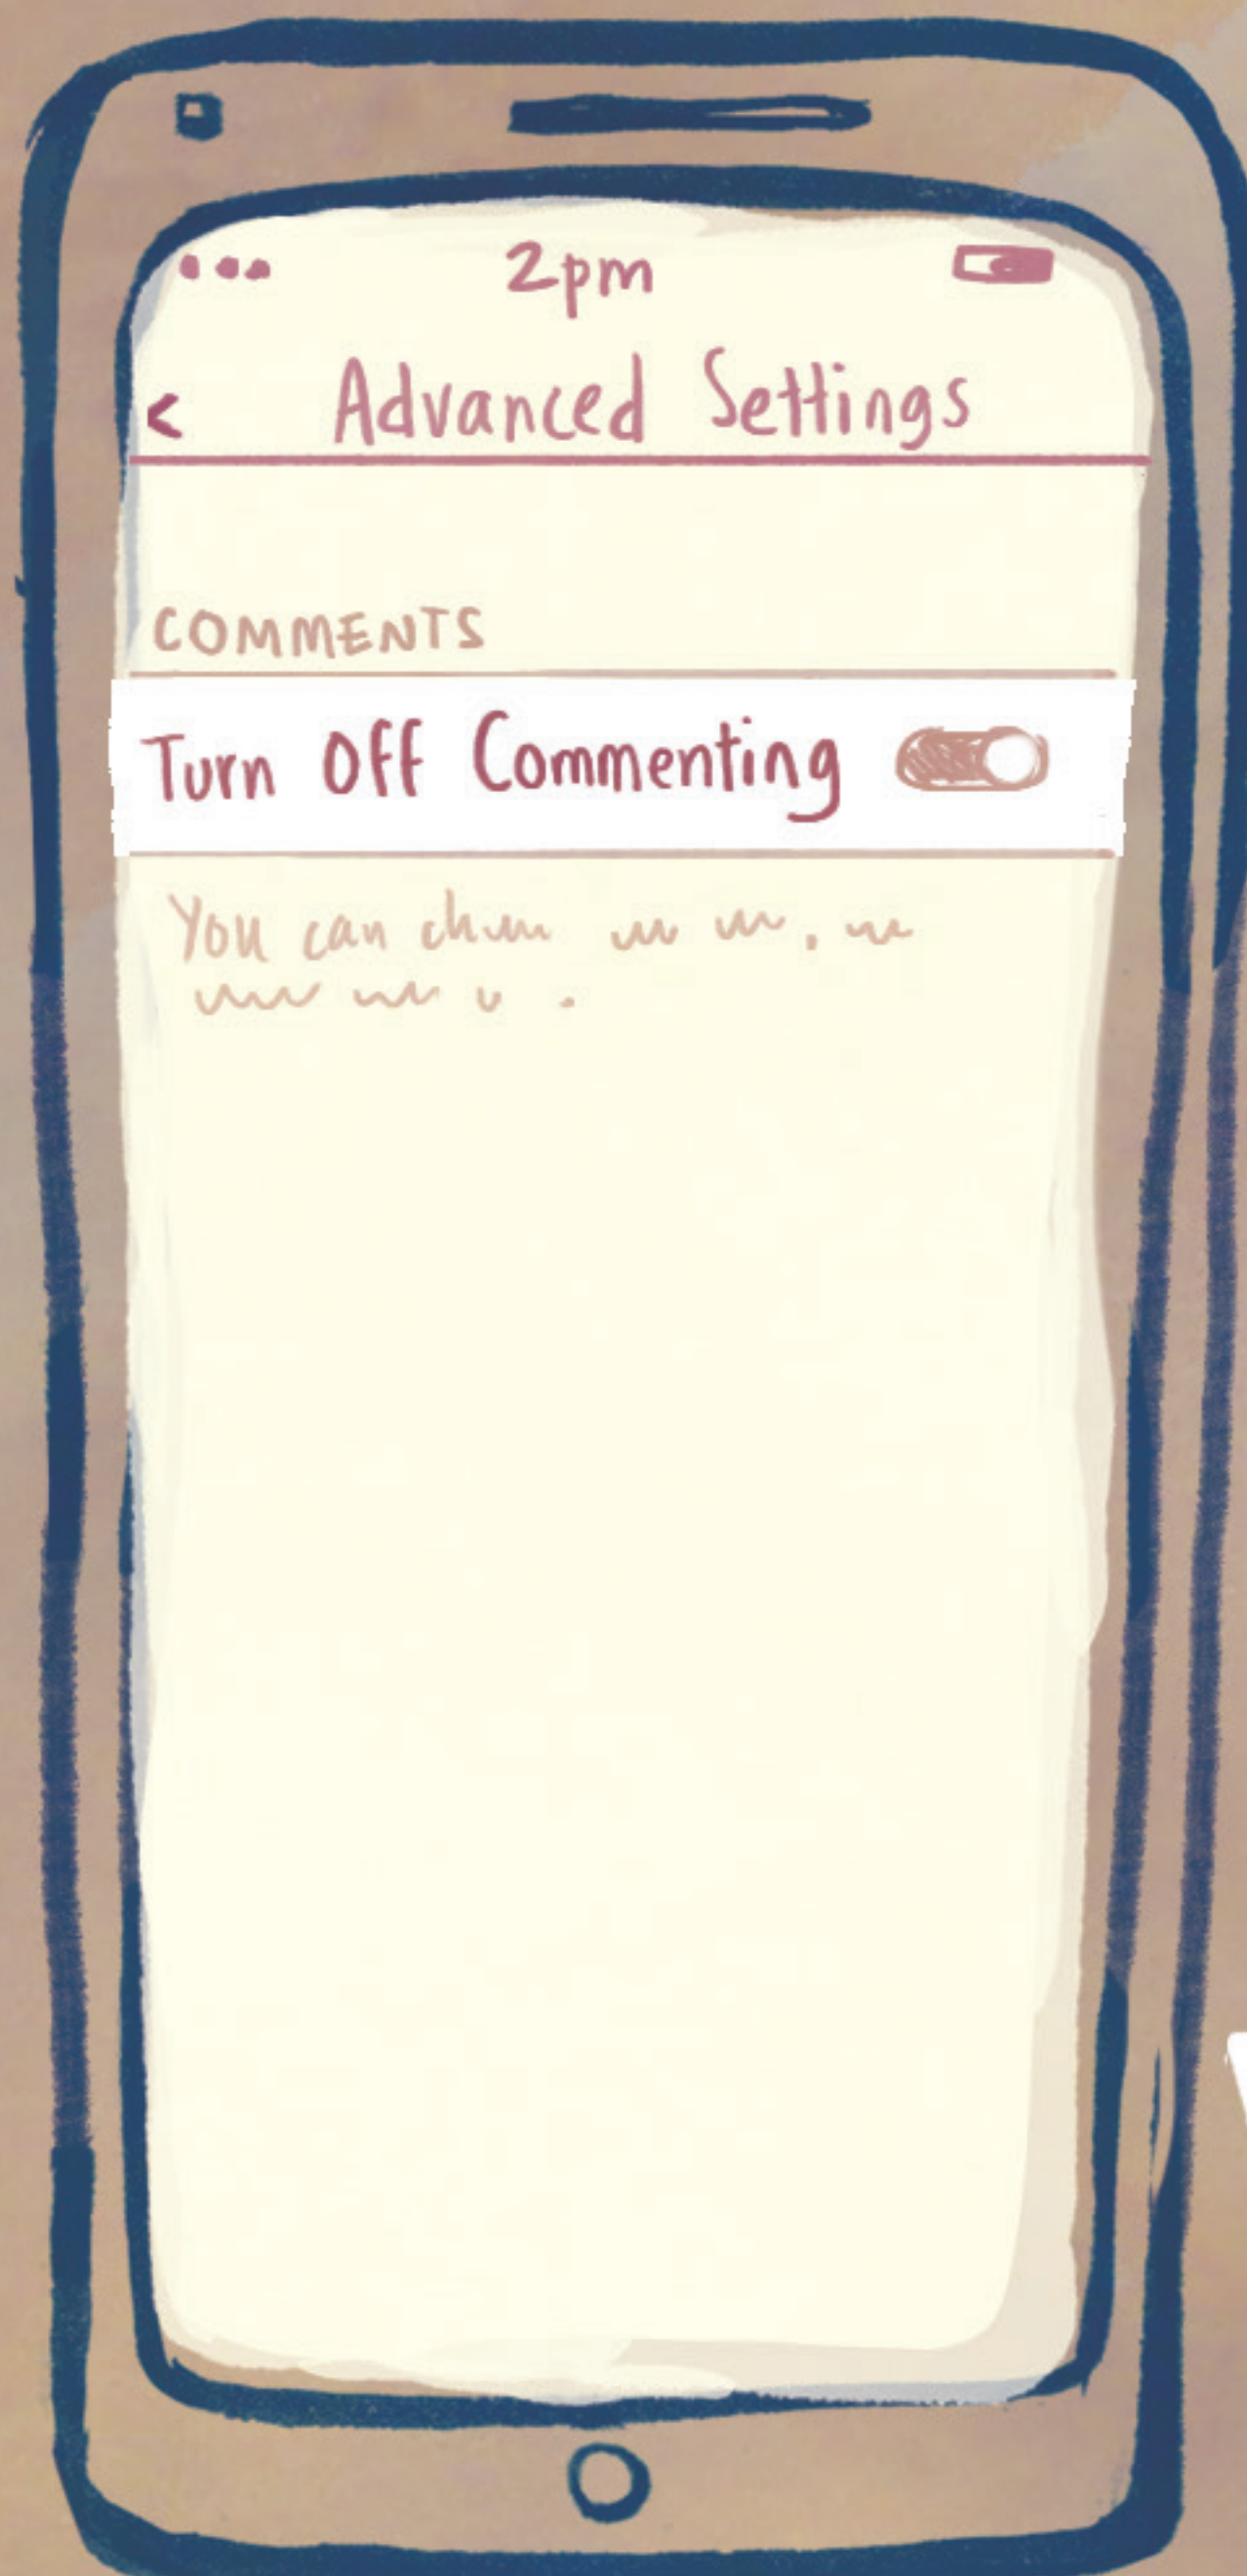 2pm
< Advanced Settings
COMMENTS
Turn Off Commenting
You can